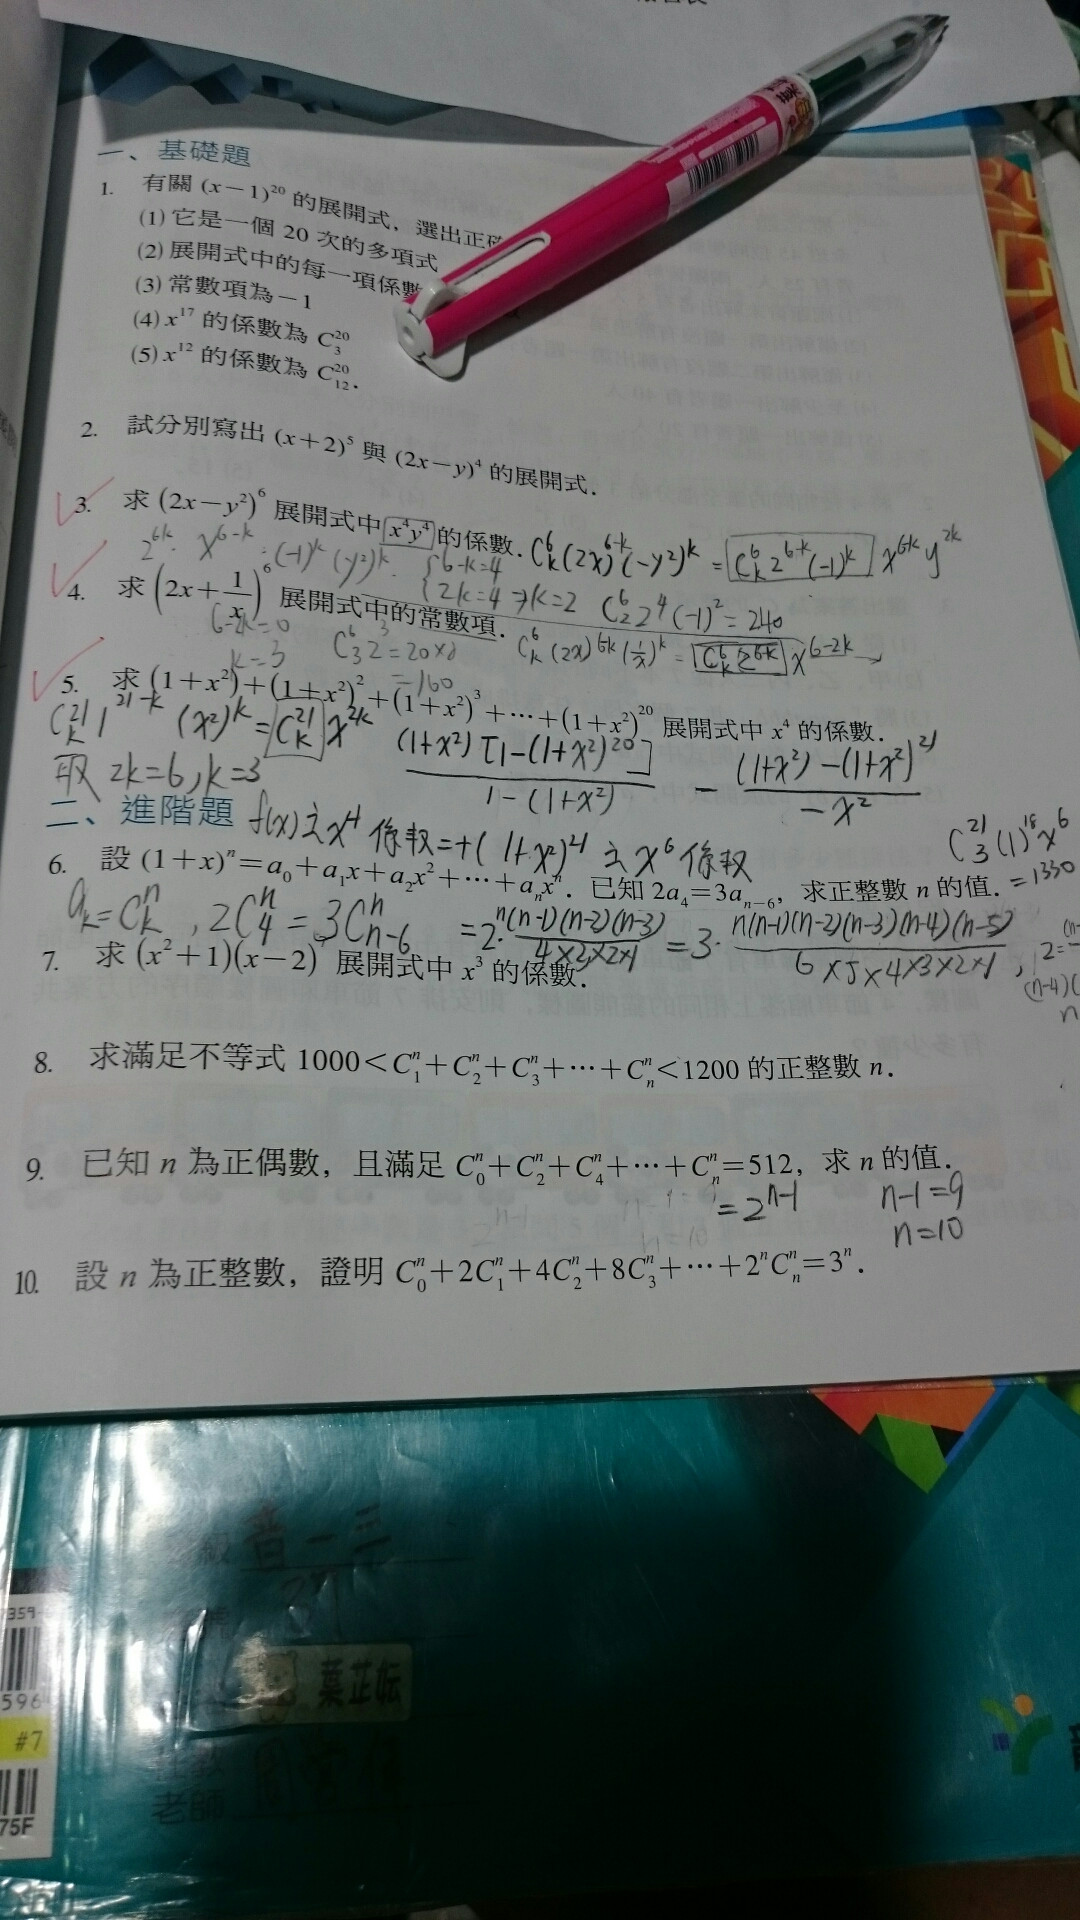 一、基礎題
1. 有關 (x－1)²⁰ 的展開式，選出正確
(1) 它是一個 20 次的多項式
(2) 展開式中的每一項係數
(3) 常數項為－1
(4) x¹⁷ 的係數為 C²⁰₃
(5) x¹² 的係數為 C²⁰₁₂.
2. 試分別寫出 (x＋2)⁵ 與 (2x－y)⁴ 的展開式.
3. 求 (2x－y²)⁶ 展開式中 x⁴y⁴ 的係數. C⁶ₖ(2x)⁶⁻ᵏ(-y²)ᵏ = C⁶ₖ2⁶⁻ᵏ(-1)ᵏ x⁶⁻ᵏy²ᵏ
2⁶⁻ᵏ·x⁶⁻ᵏ·(-1)ᵏ(y²)ᵏ. {6-k=4
2k=4 → k=2 C⁶₂2⁴(-1)² = 240
4. 求 (2x＋1/x)⁶ 展開式中的常數項. C⁶ₖ(2x)⁶⁻ᵏ(1/x)ᵏ = C⁶ₖ2⁶⁻ᵏ x⁶⁻²ᵏ
6-2k=0
k=3 C⁶₃2³=20×8
=160
5. 求 (1＋x²)＋(1＋x²)²＋(1＋x²)³＋…＋(1＋x²)²⁰ 展開式中 x⁴ 的係數.
C²¹ₖ1²¹⁻ᵏ(x²)ᵏ = C²¹ₖ x²ᵏ (1+x²)[1-(1+x²)²⁰] / 1-(1+x²) = (1+x²)-(1+x²)²¹ / -x²
取 2k=6, k=3
二、進階題
f(x)之x⁴係數=+(1+x²)²¹之x⁶係數
C²¹₃(1)¹⁸x⁶
=1330
6. 設 (1＋x)ⁿ＝a₀＋a₁x＋a₂x²＋…＋aₙxⁿ. 已知 2a₄＝3aₙ₋₆，求正整數 n 的值.
aₖ=Cⁿₖ, 2Cⁿ₄ = 3Cⁿₙ₋₆ =2·n(n-1)(n-2)(n-3) / 4×3×2×1 = 3·n(n-1)(n-2)(n-3)(n-4)(n-5) / 6×5×4×3×2×1, 2=
(n-4)(
n
7. 求 (x²＋1)(x－2)⁷ 展開式中 x³ 的係數.
8. 求滿足不等式 1000＜Cⁿ₁＋Cⁿ₂＋Cⁿ₃＋…＋Cⁿₙ＜1200 的正整數 n.
9. 已知 n 為正偶數，且滿足 Cⁿ₀＋Cⁿ₂＋Cⁿ₄＋…＋Cⁿₙ＝512，求 n 的值.
=2ⁿ⁻¹ n-1=9
n=10
10. 設 n 為正整數，證明 Cⁿ₀＋2Cⁿ₁＋4Cⁿ₂＋8Cⁿ₃＋…＋2ⁿCⁿₙ＝3ⁿ.
音一三
葉芷妘
老師
359
596
#7
75F